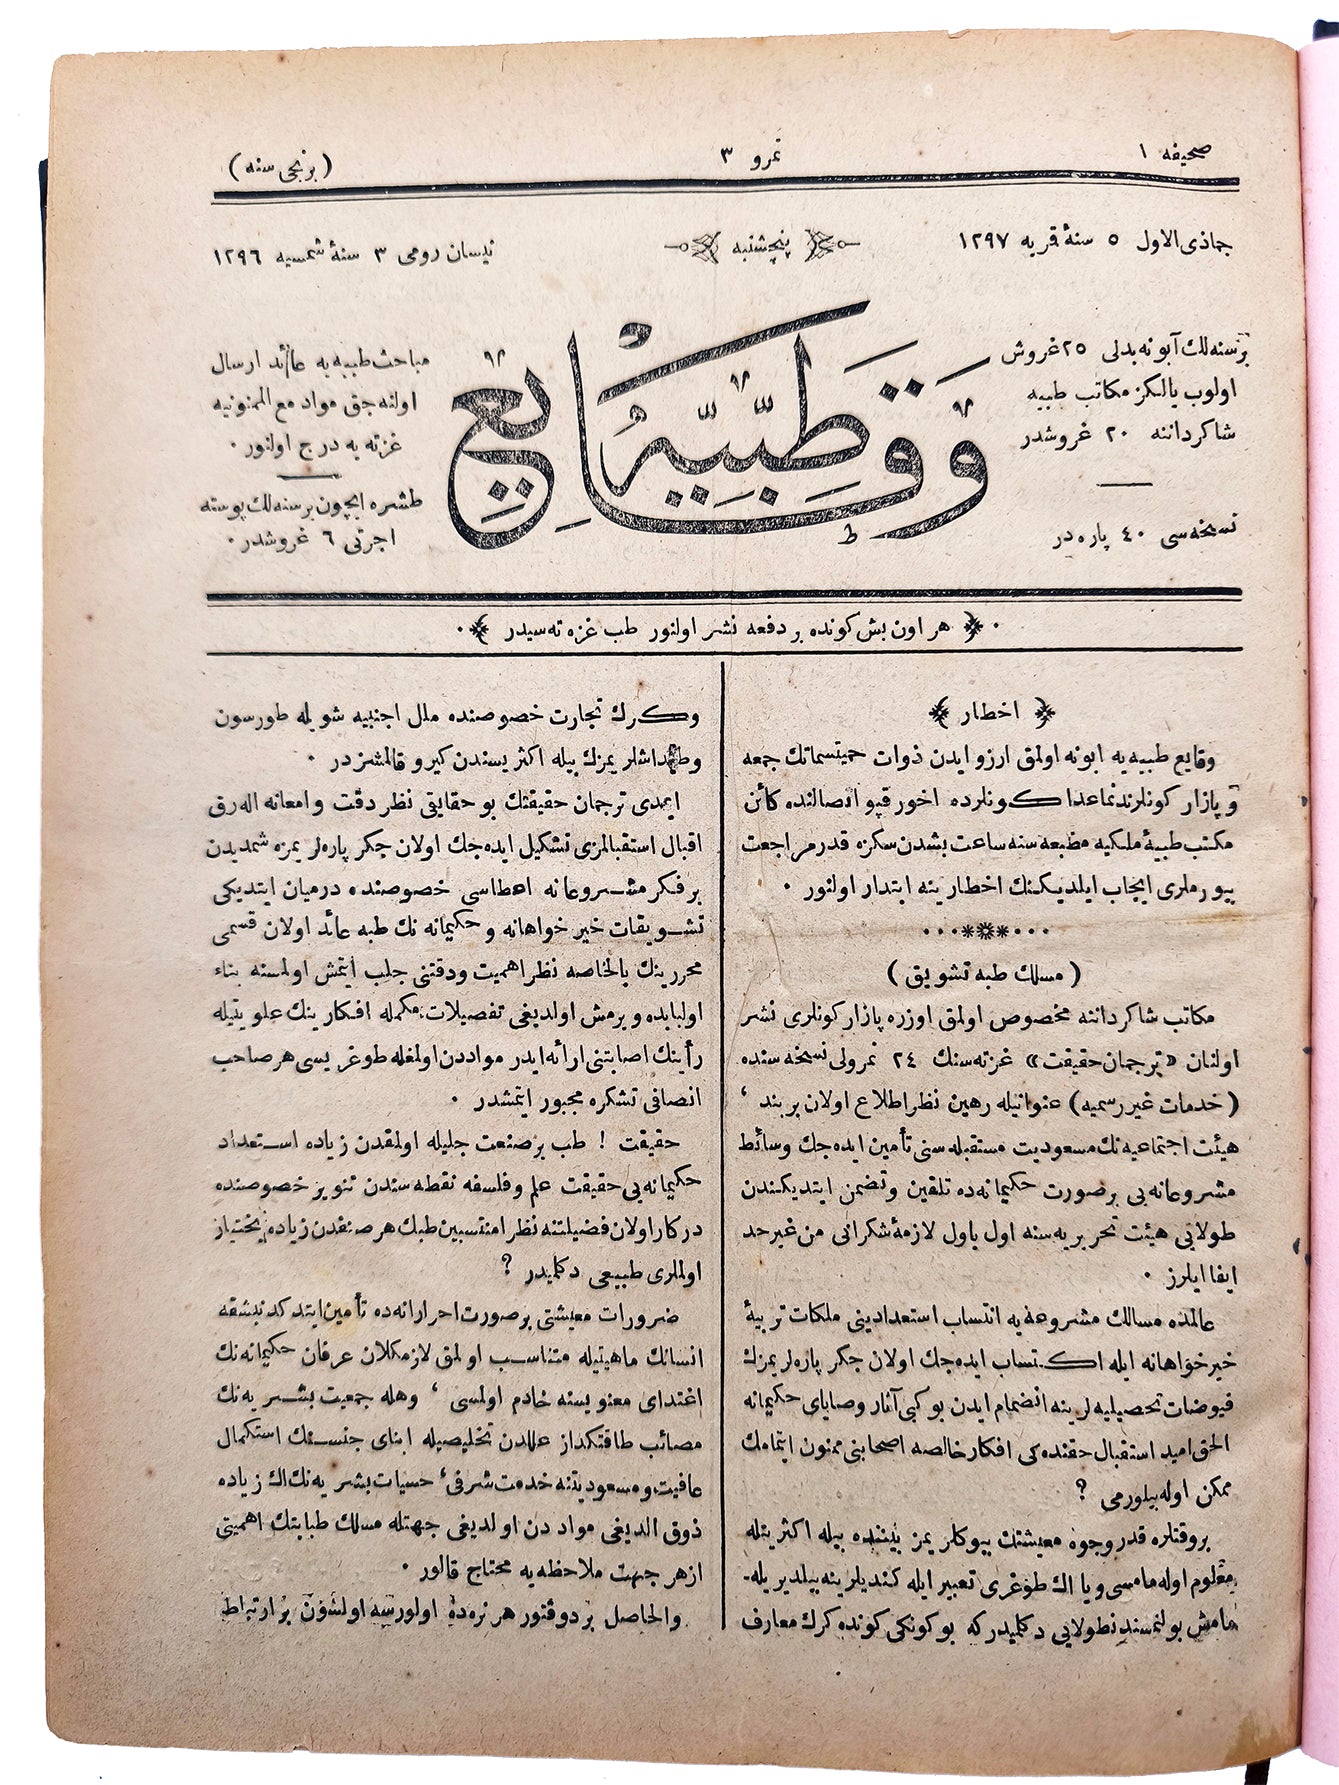 صحيفه ١
نمرو ٣
(برنجى سنه)
جماذى الاول ٥ سنهٔ قريه ١٢٩٧
پنچشنبه
نيسان رومى ٣ سنهٔ شمسيه ١٢٩٦
برسنه لك آبونه بدلى ٢٥ غروش
اولوب يالكز مكاتب طبيه
شاكرداننه ٢٠ غروشدر
نسخه سى ٤٠ پاره در
وقايع طبيه
مباحث طبيه يه عائد ارسال
اولنه جق مواد مع الممنونيه
غزته يه درج اولنور ٠
طشره ايچون برسنه لك پوسته
اجرتى ٦ غروشدر ٠
هر اون بش كونده بر دفعه نشر اولنور طب غزه ته سيدر ٠
اخطار
وقايع طبيه يه ابونه اولمق ارزو ايدن ذوات حميتسماتك جمعه
و پازار كونلرندنماعدا كونلرده اخور قپو اتصالنده كائن
مكتب طبيهٔ ملكيه مطبعه سنه ساعت بشدن سكزه قدر مراجعت
بيورملرى ايجاب ايلديكنك اخطارينه ابتدار اولنور ٠
(مسلك طبه تشويق)
مكاتب شاكرداننه مخصوص اولمق اوزره پازار كونلرى نشر
اولنان «ترجمان حقيقت» غزته سنك ٢٤ نمرولى نسخه سنده
(خدمات غير رسميه) عنوانيله رهين نظر اطلاع اولان بر بند ،
هيئت اجتماعيه نك مسعوديت مستقبله سنى تأمين ايده جك وسائط
مشروعانه يى برصورت حكيمانه ده تلقين و تضمن ايتديكندن
طولايى هيئت تحريريه سنه اول باول لازمهٔ شكرانى من غير حد
ايفا ايلرز ٠
عالمده مسالك مشروعه يه انتساب استعدادينى ملكات تربيهٔ
خيرخواهانه ايله اكتساب ايده جك اولان جكر پاره لريمزك
فيوضات تحصيليه لرينه انضمام ايدن بو كبى آثار وصاياى حكيمانه
الحق اميد استقبال حقنده كى افكار خالصه اصحابنى ممنون ايتمامك
ممكن اوله بيلورمى ؟
بروقتلره قدر وجوه معيشتك بيوكلريمز بيننده بيله اكثريتله
معلوم اوله مامسى ويا اك طوغرى تعبير ايله كنديلرينه بيلديريله-
مامش بولنمسندنطولايى دكليدركه بوكونكى كونده كرك معارف
وكرك تجارت خصوصنده ملل اجنبيه شويله طورسون
وطنداشلريمزك بيله اكثريسندن كيرو قالمشزدر ٠
ايمدى ترجمان حقيقتك بو حقايقى نظر دقت و امعانه اله رق
اقبال استقبالمزى تشكيل ايده جك اولان جكر پاره لريمزه شمديدن
بر فكر مشروعانه اعطاسى خصوصنده درميان ايتديكى
تشويقات خير خواهانه و حكيمانه نك طبه عائد اولان قسمى
محررينك بالخاصه نظر اهميت ودقتنى جلب ايتمش اولمسنه بناء
اولبابده ويرمش اولديغى تفصيلات مكمله افكارينك علويتيله
رأينك اصابتنى ارائه ايدر مواددن اولمغله طوغريسى هر صاحب
انصافى تشكره مجبور ايتمشدر ٠
حقيقت ! طب بر صنعت جليله اولمقدن زياده استعداد
حكيمانه يى حقيقت علم و فلسفه نقطه سندن تنوير خصوصنده
دركار اولان فضيلتنه نظرا منتسبين طبك هر صنفدن زياده بختيار
اولملرى طبيعى دكليدر ؟
ضرورات معيشتى برصورت احرارانه ده تأمين ايتدكدنبشقه
انسانك ماهيتيله متناسب اولمق لازمكلان عرفان حكيمانه نك
اغتداى معنويسنه خادم اولمسى ، وهله جمعيت بشريه نك
مصائب طاقتكداز عللدن تخليصيله ابناى جنسنك استكمال
عافيت و مسعوديتنه خدمت شرفى ، حسيات بشريه نك اك زياده
ذوق الديغى مواددن اولديغى جهتله مسلك طبابتك اهميتى
ازهر جهت ملاحظه يه محتاج قالور ٠
والحاصل بر دوقتور هر نره ده اولورسه اولسون بر ارتباط